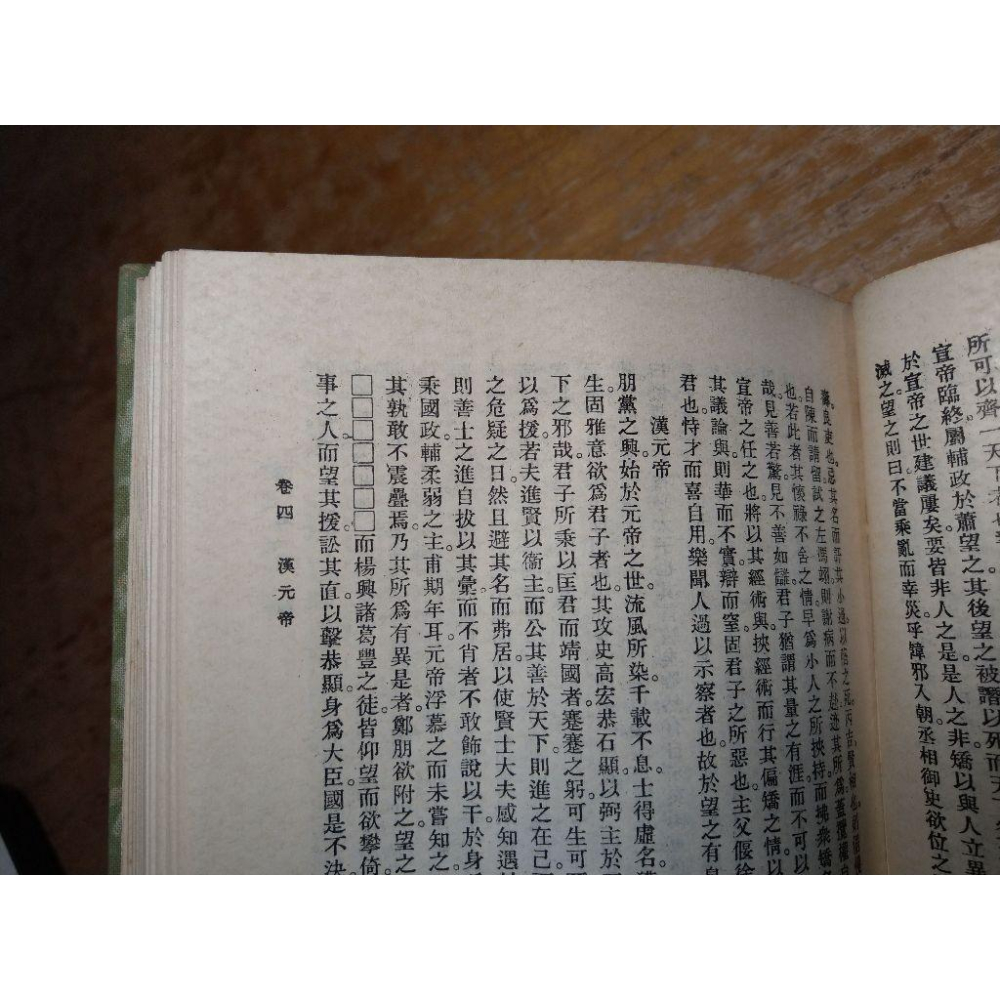 所可以齊一天下者也
宣帝臨終屬輔政於蕭望之其後望之被譖以死而天
於宣帝之世建議屢矣。要皆非人之是。是人之非。矯以與人立異
滅之。望之則曰不當乘亂而幸災。乎韓邪入朝。丞相御史欲位之
壽。良吏也。忌其名而訐其小過以陷之死。丙吉賢相也。
自陳而請留試之左馮翊則謝病而不赴。迨其所爲。蓋攬權自
也。若此者。其懷祿不舍之情。早爲小人之所挾持而拂衆矯
哉。見善若驚。見不善如讎。君子猶謂其量之有涯而不可以
宣帝之任之也。將以其經術與。挾經術而行其偏矯之情。以
其議論與。則華而不實。辯而窒。固君子之所惡也。主父偃徐
君也。恃才而喜自用。樂聞人過以示察者也。故於望之有
漢元帝
朋黨之興。始於元帝之世。流風所染。千載不息。士得虛名
生。固雅意欲爲君子者也。其攻史高宏恭石顯以弼主於
下之邪哉。君子所乘以匡君而靖國者。蹇蹇之躬。可生可
以爲援。若夫進賢以衞主。而公其善於天下。則進之在己。
之危疑之日。然且避其名而弗居。以使賢士大夫感知遇
則善士之進。自拔以其彙。而不肖者不敢飾說以干於身
乘國政。輔柔弱之主。甫期年耳。元帝浮慕之而未嘗知之
其孰敢不震疊焉。乃其所爲有異是者。鄭朋欲附之。望之
□□□□□□□而楊興諸葛豐之徒皆仰望而欲攀倚
事之人而望其援。訟其直。以擊恭顯。身爲大臣。國是不決
卷四　漢元帝